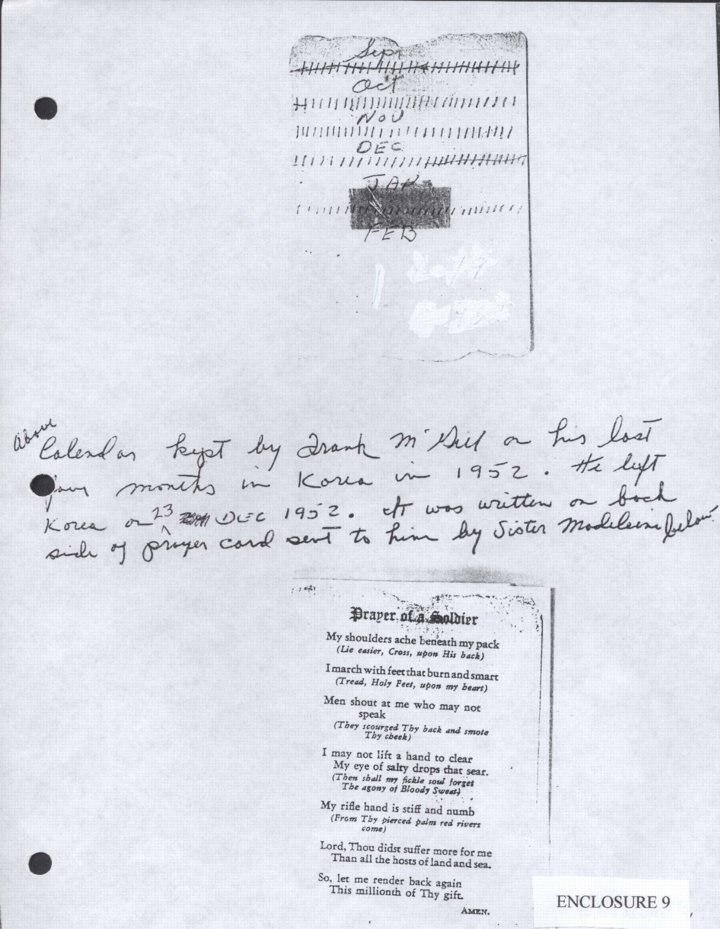 Sept
Oct
NOV
DEC
JAN
FEB
Above
Calendar kept by Frank McGill on his last
four months in Korea in 1952. He left
Korea on 23 DEC 1952. It was written on back
side of prayer card sent to him by Sister Madeleine below.
Prayer of a Soldier
My shoulders ache beneath my pack
(Lie easier, Cross, upon His back)
I march with feet that burn and smart
(Tread, Holy Feet, upon my heart)
Men shout at me who may not
speak
(They scourged Thy back and smote
Thy cheek)
I may not lift a hand to clear
My eye of salty drops that sear.
(Then shall my fickle soul forget
The agony of Bloody Sweat)
My rifle hand is stiff and numb
(From Thy pierced palm red rivers
come)
Lord, Thou didst suffer more for me
Than all the hosts of land and sea.
So, let me render back again
This millionth of Thy gift.
AMEN.
ENCLOSURE 9